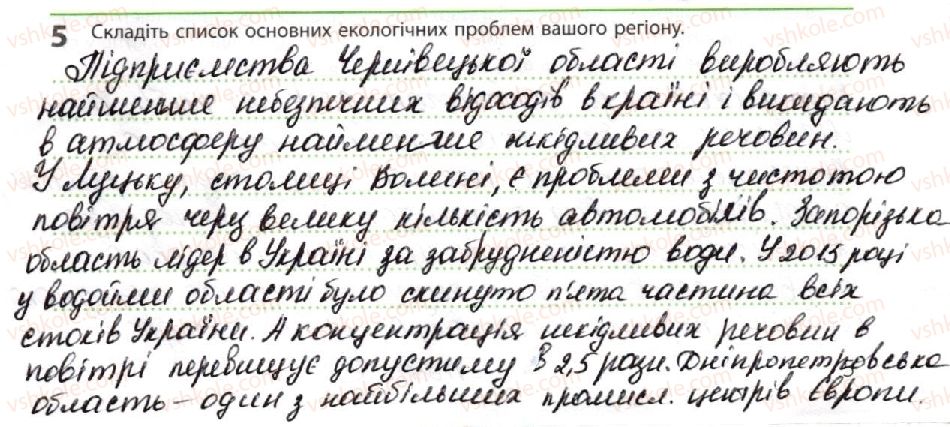 5 Складіть список основних екологічних проблем вашого регіону.
Підприємства Чернівецької області виробляють
найменше небезпечних відходів в країні і викидають
в атмосферу найменше шкідливих речовин.
У Луцьку, столиці Волині, є проблеми з чистотою
повітря через велику кількість автомобілів. Запорізька
область лідер в Україні за забрудненістю води. У 2015 році
у водойми області було скинуто п'ята частина всіх
стоків України. А концентрація шкідливих речовин в
повітрі перевищує допустиму в 2,5 рази. Дніпропетровська
область – один з найбільших промисл. центрів Європи.